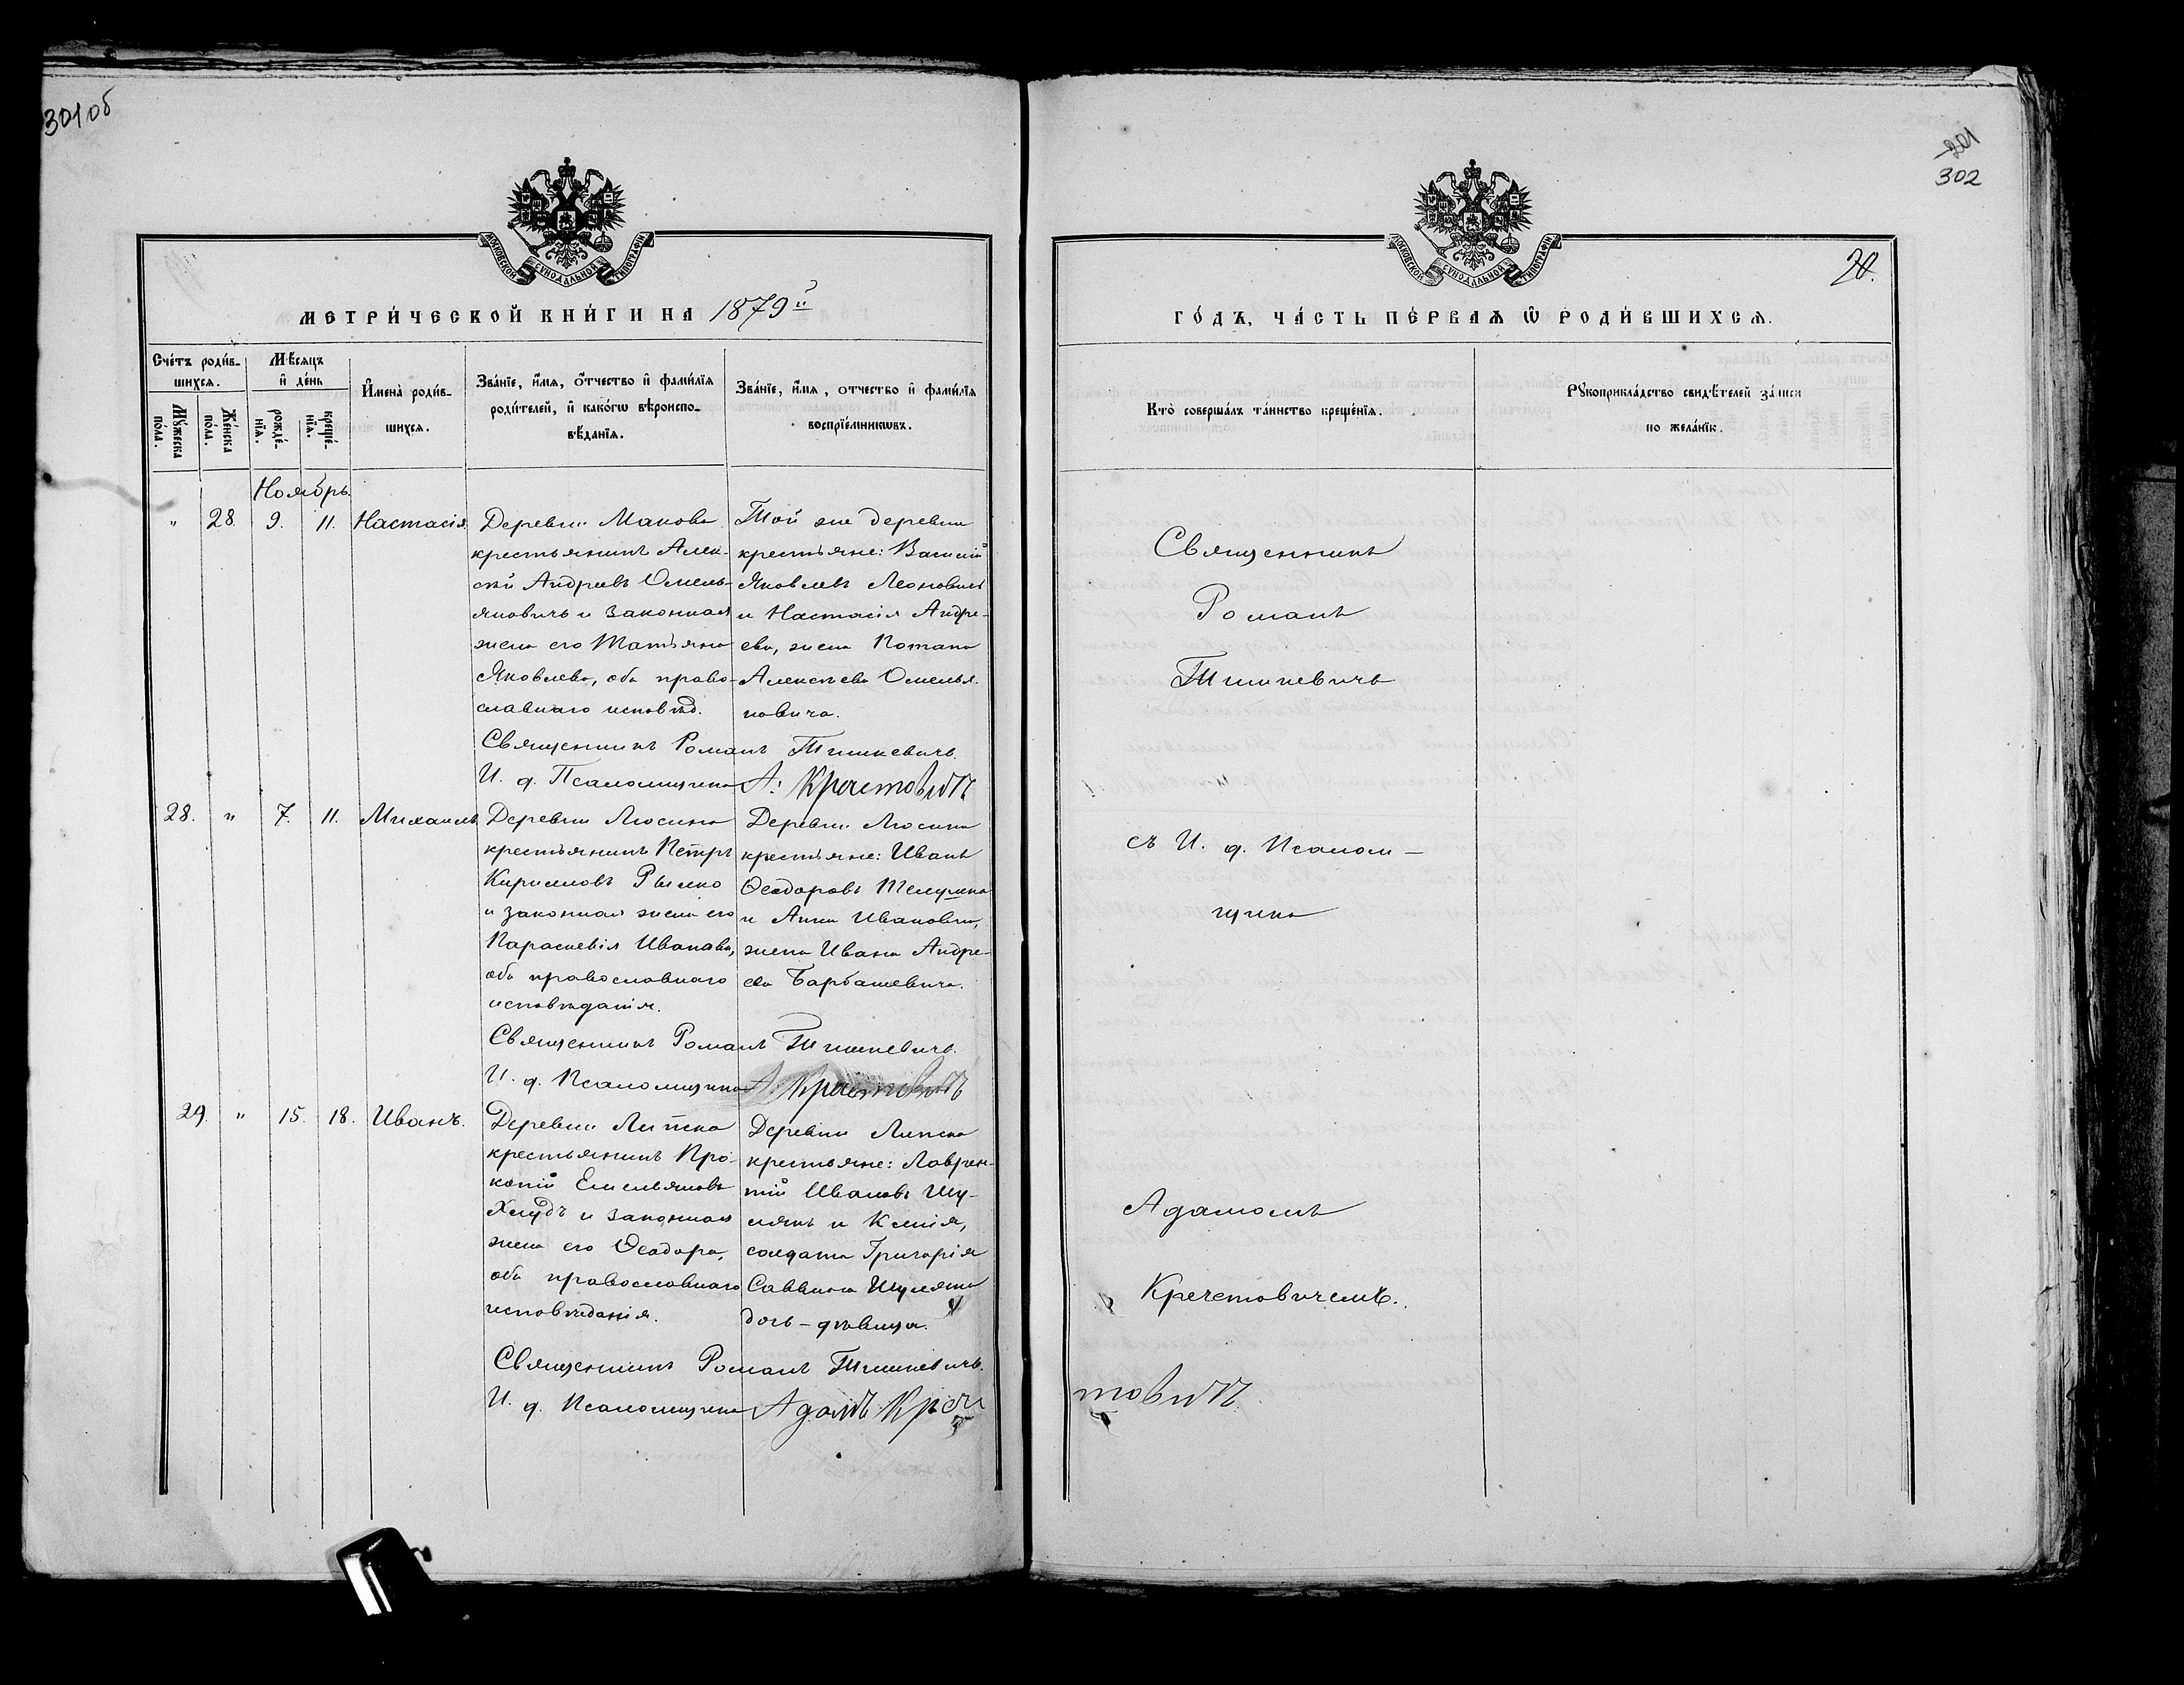 301об
201
302
МОСКОВСКОЙ СѴНОДАЛЬНОЙ ТИПОГРАФІИ
МЕТРИ́ЧЕСКОЙ КНИ́ГИ НА 1879й
Сче́тъ роди́в-
шихся.
Мѣ́сяцъ
и де́нь
Мꙋ́жеска
по́ла.
Же́нска
по́ла.
рожде́-
нїя.
креще́-
нїя.
Имена̀ роди́в-
шихся.
Зва́нїе, и́мя, о́тчество и фами́лїя
роди́телей, и како́гѡ вѣроиспо-
вѣ́данїя.
Зва́нїе, и́мя, отчество и фами́лїя
воспрїе́мникѡвъ.
Ноябрь
„ 28. 9. 11. Настасія
Деревни Маково
крестьянинъ Алек-
сѣй Андреевъ Омель-
яновичъ и законная
жена его Татьяна
Яковлева, оба право-
славнаго исповѣд.
Той же деревни
крестьяне: Василій
Яковлевъ Леоновичъ
и Настасія Андре-
ева, жена Потапа
Алексѣева Омелья-
новича.
Священникъ Романъ Тишкевичъ.
И. д. Псаломщика А. Кречетовичъ
28. „ 7. 11. Михаилъ
Деревни Люсино
крестьянинъ Петръ
Кирилловъ Рылко
и законная жена его
Параскевія Иванова,
оба православнаго
исповѣданія.
Деревни Люсина
крестьяне: Иванъ
Ѳеодоровъ
и Анна Ивановна,
жена Ивана Андре-
ева Барбашевича.
Священникъ Романъ Тишкевичъ.
И. д. Псаломщика А. Кречетовичъ
29. „ 15. 18. Иванъ.
Деревни Липска
крестьянинъ Про-
копій Емельяновъ
Хлудъ и законная
жена его Ѳеодора,
оба православнаго
исповѣданія.
Деревни Липска
крестьяне: Лаврен-
тій Ивановъ Шу-
лякъ и Ксенія,
солдата Григорія
Саввина Шуляка
дочь-дѣвица.
Священникъ Романъ Тишкевичъ.
И. д. Псаломщика Адамъ Крече
20.
МОСКОВСКОЙ СѴНОДАЛЬНОЙ ТИПОГРАФІИ
ГО́ДЪ, ЧА́СТЬ ПЕ́РВАЯ Ѿ РОДИ́ВШИХСЯ.
Кто̀ соверша́лъ та́инство креще́нїя.
Рꙋкоприкла́дство свидѣ́телей за́писи
по жела́нїю.
Священникъ
Романъ
Тишкевичъ
съ И. д. Псалом-
щика
Адамомъ
Кречетовичемъ.
товичъ